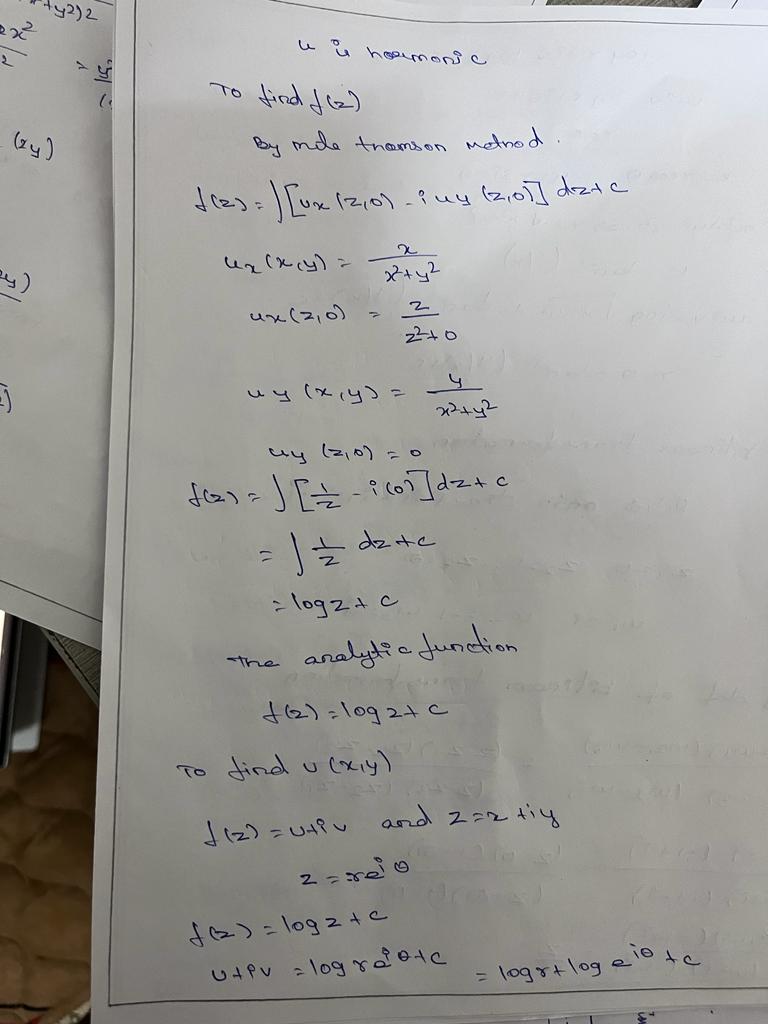 +y2)2
2x²
2
(xy)
u is harmonic
To find f(z)
By mile thomson method.
f(z) = ∫[ux(z,0) - i uy (z,0)] dz+c
ux(x,y) = x/x²+y²
ux(z,0) = z/z²+0
uy (x,y) = y/x²+y²
uy (z,0) = 0
f(z) = ∫[1/z - i(0)]dz+c
= ∫ 1/z dz+c
= log z + c
The analytic function
f(z) = log z + c
To find v(x,y)
f(z) = u+iv and z = x+iy
z = re^iθ
f(z) = log z + c
u+iv = log re^iθ+c = log r + log e^iθ + c